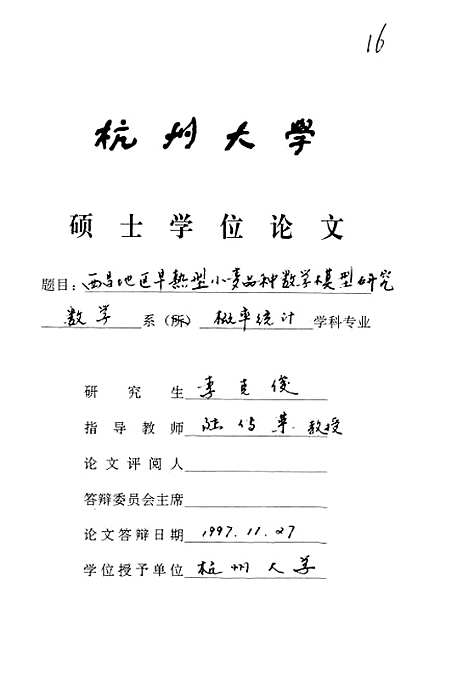 16
杭州大学
硕士学位论文
题目：西昌地区早熟型小麦品种数学模型研究
数学 系（所） 概率统计 学科专业
研究生 李克俊
指导教师 陆传 教授
论文评阅人
答辩委员会主席
论文答辩日期 1997.11.27
学位授予单位 杭州大学